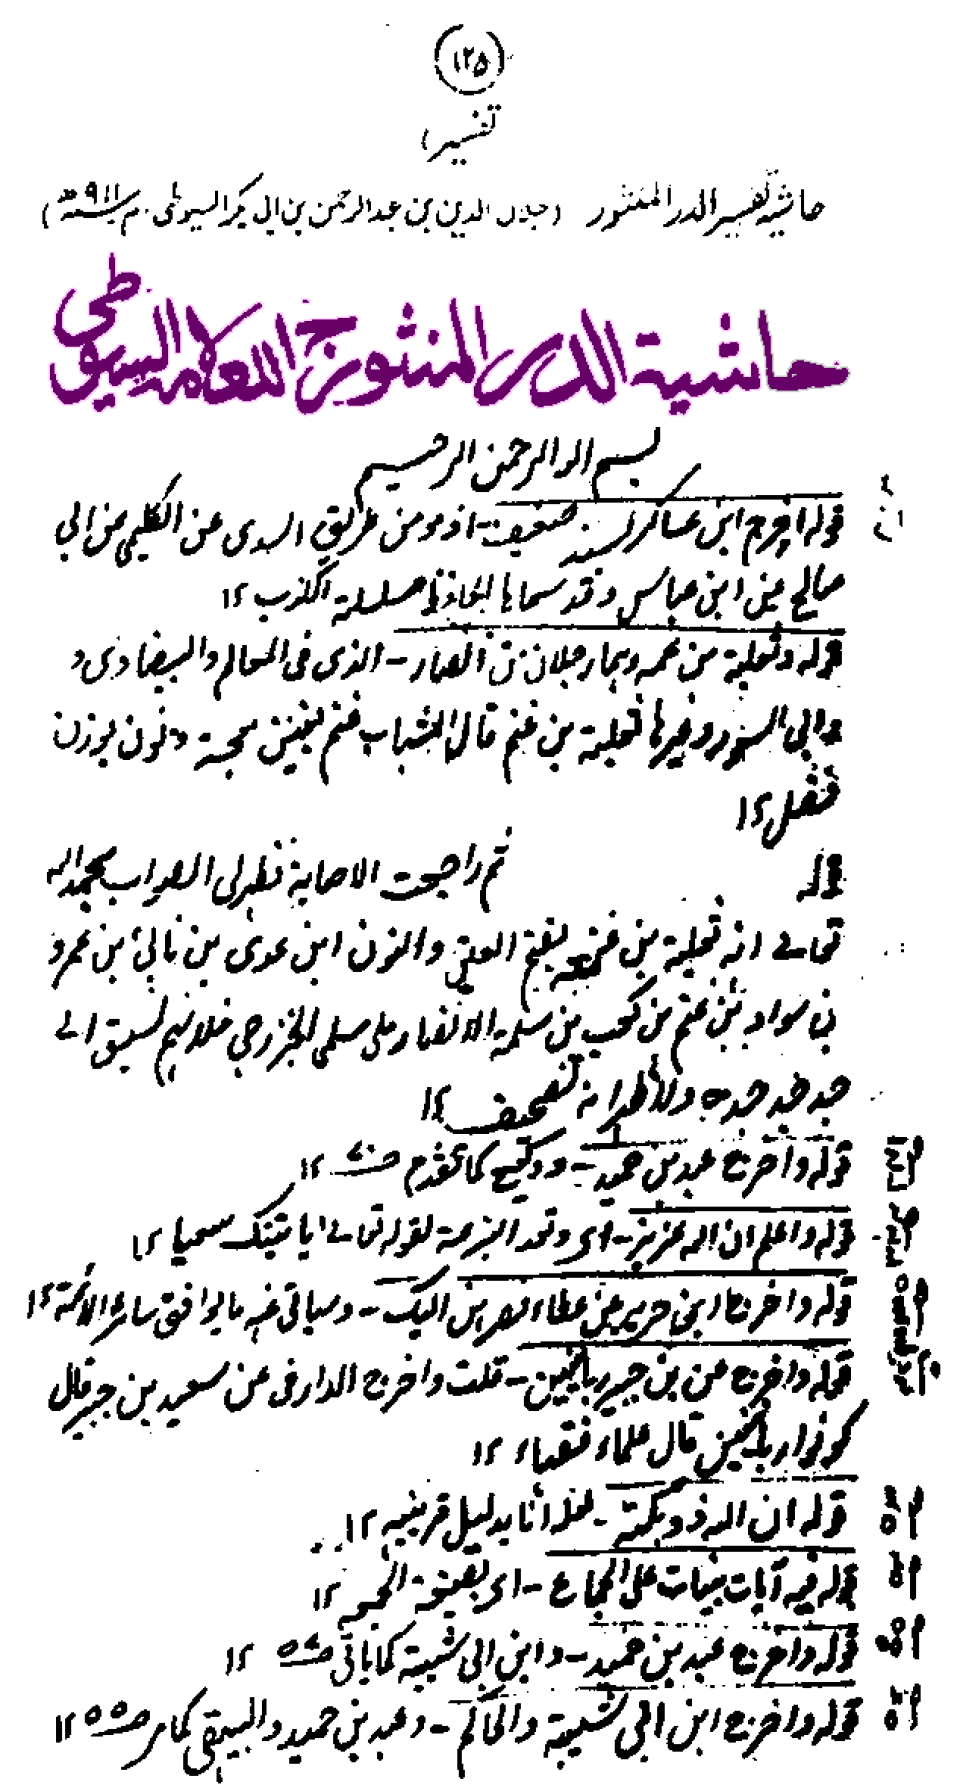 (۱۲۵)
تفسیر
حاشیہ تفسیر الدر المنثور (جلال الدین بن عبدالرحمٰن بن ابی بکر السیوطی م سنہ ۹۱۱ھ)
حاشیة الدر المنثور ج العلامه السيوطی
بسم الله الرحمن الرحيم
قوله اخرج ابن عساكر بسند ضعيف - اذ هو من طريق السدى عن الكلبى عن ابى
صالح عن ابن عباس وقد سماها الحافظ سلسلة الكذب ۱۲
قوله وثعلبة بن عمه وهما رجلان من الانصار - الذى فى المعالم والبيضاوى و
وابى السعود وغيرها ثعلبة بن غنم قال الشهاب غنم بغين معجمة ونون بوزن
فعل ۱۲
ثم راجعت الاصابة فظهر لى الصواب بحمد الله
تعالى انه ثعلبة بن عنمه بفتح العين والنون ابن عدى بن نابئ بن عمرو
بن سواد بن غنم بن كعب بن سلمة الانصارى سلمى الخزرجى فلا تهم لسبق الى
جد جد جده ولا اظهر انه تصحيف ۱۲
قوله واخرج عبد بن حميد - ووكيع كما تقدم ۱۲
قوله واعلم ان الله عزيز - اى وقد النزعة لقوله تعالى يأتينك سعيا ۱۲
قوله واخرج ابن جرير عن عطاء فصرهن اليك - وسياتى عنه ما يوافق سائر الائمة ۱۲
قوله واخرج عن بن جبير ربانيين - قلت واخرج الدارمى عن سعيد بن جبير قال
كونوا ربانيين قال علماء فقهاء ۱۲
قوله ان الله ذو بكة - لعله انا بدليل قرينيه ۱۲
قوله فيه آيات بينات على الجماع - اى بصيغة الجمع ۱۲
قوله واخرج عبد بن حميد - وابن ابى شيبة كما ياتى ۱۲
قوله واخرج ابن ابى شيبة والحاكم - وعبد بن حميد والبيهقى كما مر ص۵۵ ۱۲